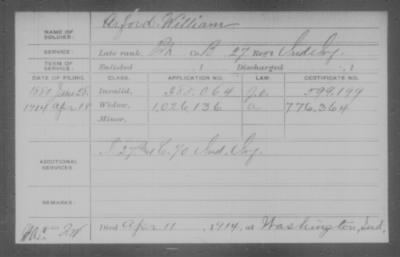 NAME OF SOLDIER: Axford, William
SERVICE: Late rank, Pvt Co. B, 27 Reg't Ind. Inf.
TERM OF SERVICE: Enlisted , 1 Discharged , 1
DATE OF FILING. CLASS. APPLICATION NO. LAW. CERTIFICATE NO.
1880 June 28. Invalid, 388.064 599.199
1914 Apr 18 Widow, 1,026,136 a 776.364
Minor,
ADDITIONAL SERVICES: 27 & 70 Ind. Inf.
REMARKS:
Died Apr 11, 1914, at Washington, Ind.